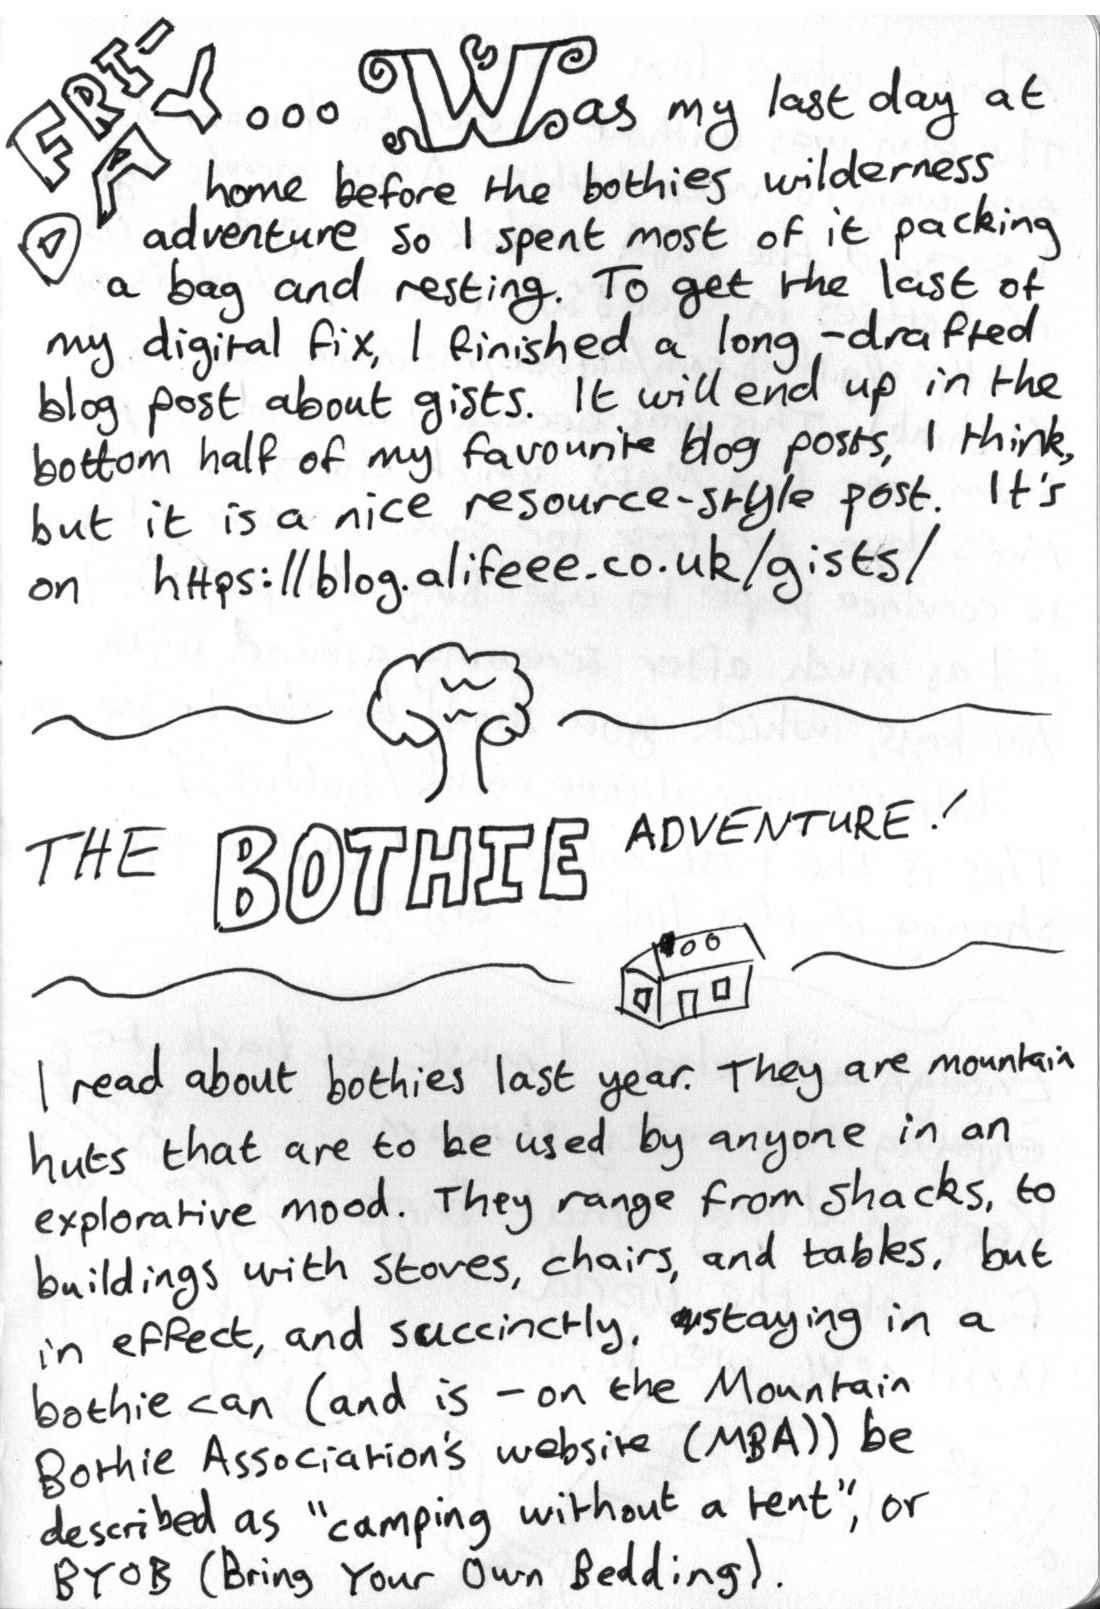 FRI-
DAY... Was my last day at
home before the bothies wilderness
adventure so I spent most of it packing
a bag and resting. To get the last of
my digital fix, I finished a long-drafted
blog post about gists. It will end up in the
bottom half of my favourite blog posts, I think,
but it is a nice resource-style post. It's
on https://blog.alifeee.co.uk/gists/
THE BOTHIE ADVENTURE!
I read about bothies last year. They are mountain
huts that are to be used by anyone in an
explorative mood. They range from shacks, to
buildings with stoves, chairs, and tables, but
in effect, and succinctly, staying in a
bothie can (and is - on the Mountain
Bothie Association's website (MBA)) be
described as "camping without a tent", or
BYOB (Bring Your Own Bedding).